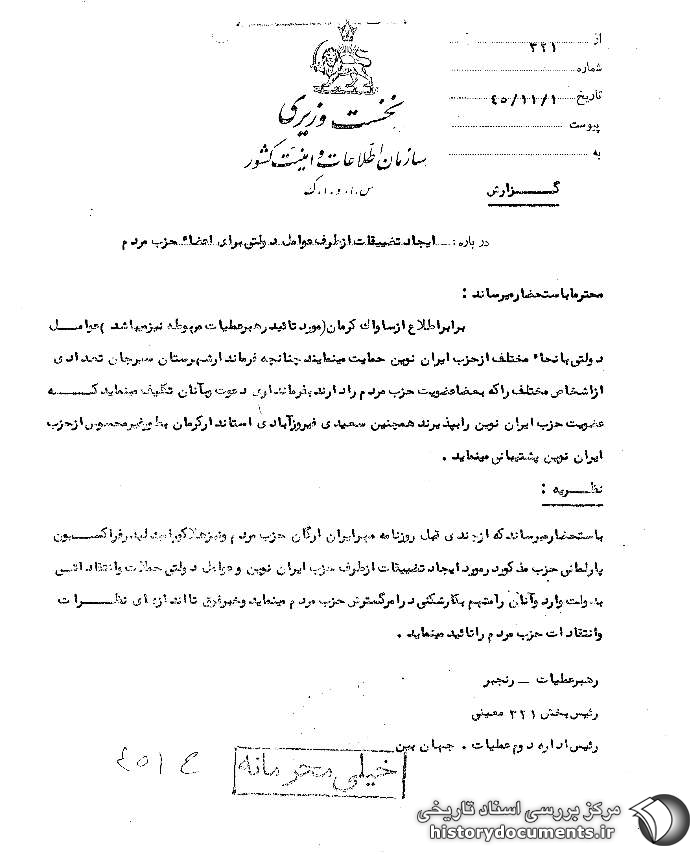 از ۳۲۱
شماره
تاریخ ۴۵/۱۱/۱
پیوست
به
نخست وزیری
سازمان اطلاعات و امنیت کشور
س.ا.و.ا.ک
گزارش
درباره: ایجاد تضییقات از طرف عوامل دولتی برای اعضاء حزب مردم
محترما باستحضار میرساند :
برابر اطلاع از ساواک کرمان (مورد تائید رهبر عملیات مربوطه نیز میباشد) عوامل
دولتی بانحاء مختلف از حزب ایران نوین حمایت مینمایند چنانچه فرماندار شهرستان سیرجان تعدادی
از اشخاص مختلف را که بعضا عضویت حزب مردم را دارند بفرمانداری دعوت و بآنان تکلیف مینماید که
عضویت حزب ایران نوین را بپذیرند همچنین سعیدی فیروزآبادی استاندار کرمان بطور غیر محسوس از حزب
ایران نوین پشتیبانی مینماید .
نظریه :
باستحضار میرساند که از چندی قبل روزنامه مهر ایران ارگان حزب مردم و نیز هلاکو رامبد لیدر فراکسیون
پارلمانی حزب مذکور در مورد ایجاد تضییقات از طرف حزب ایران نوین و عوامل دولتی حملات و انتقاداتی
بدولت وارد و آنان را متهم بکارشکنی در امر گسترش حزب مردم مینماید و خبر فوق تا اندازه ای نظرات
و انتقادات حزب مردم را تائید مینماید .
رهبر عملیات - رنجبر
رئیس بخش ۳۲۱ معینی
رئیس اداره دوم عملیات . جهان بین
خیلی محرمانه
مرکز بررسی اسناد تاریخی
historydocuments.ir